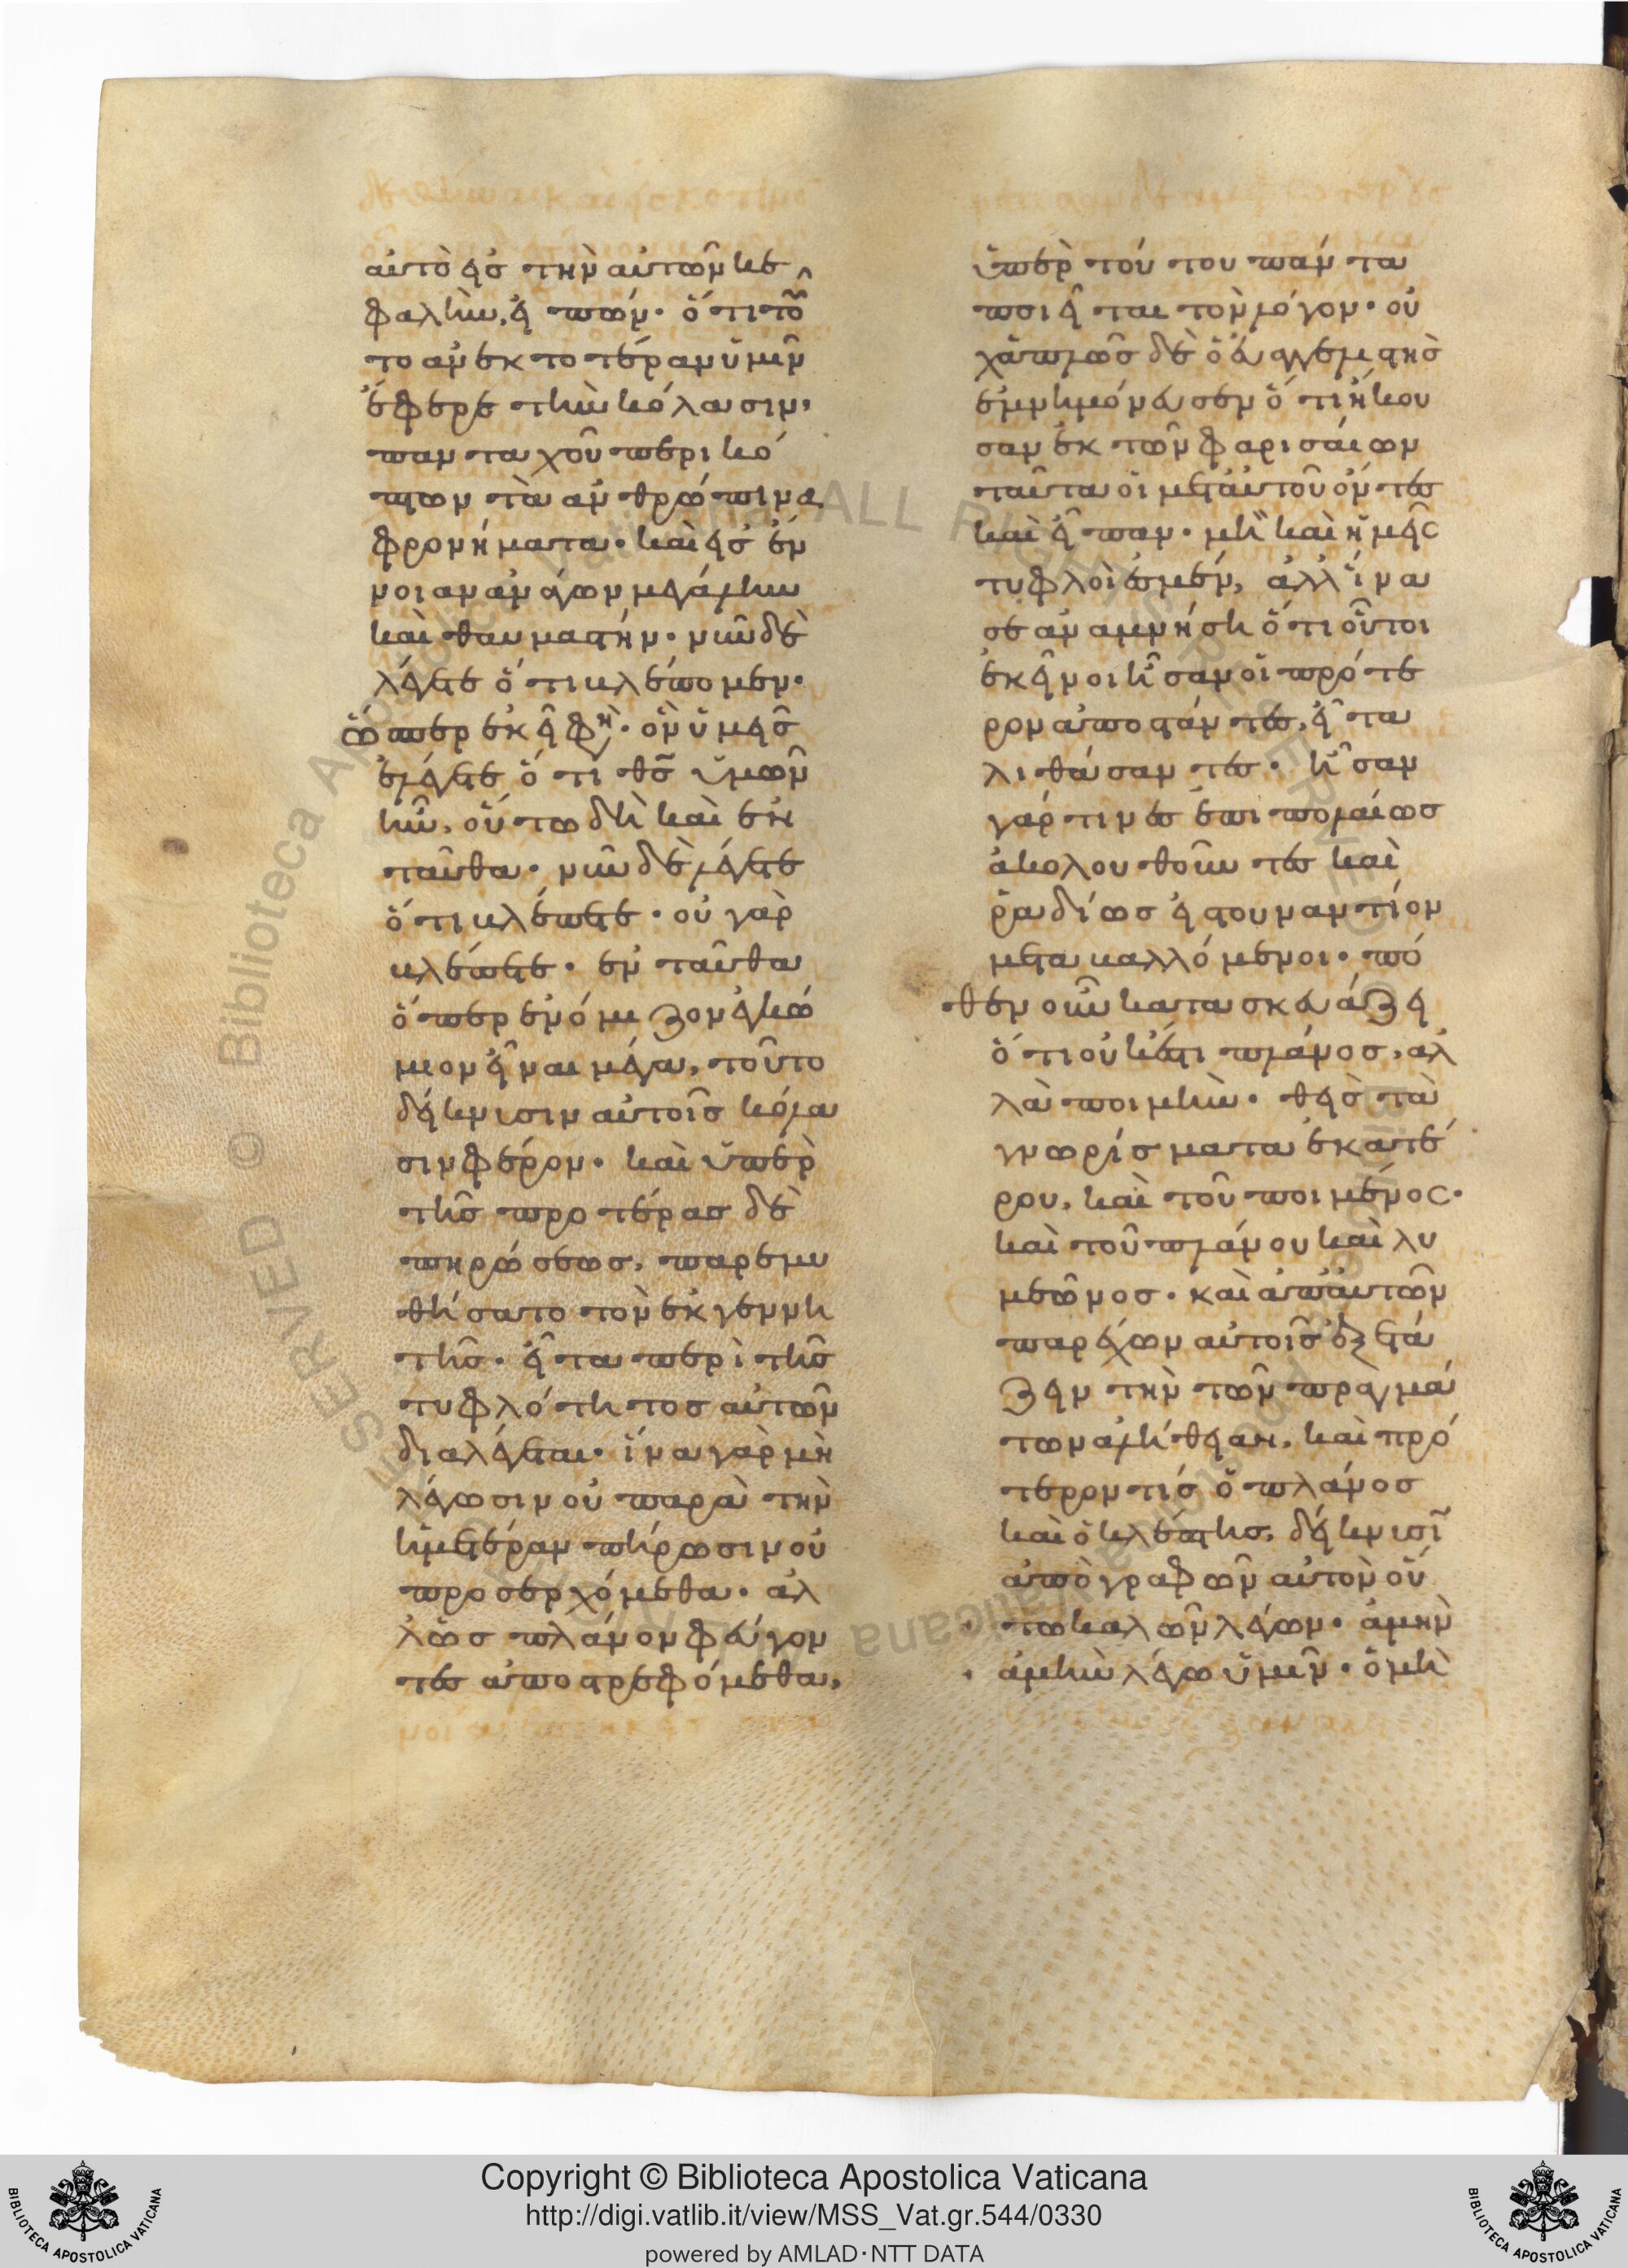 αὐτὸ εἰς τὴν αὐτῶν κε
φαλὴν, εἰπών· ὅτι τοῦ
το ἀνεκτοτέραν ὑμῖν
ἔφερε τὴν κόλασιν,
πανταχοῦ περικό
πτων τὰ ἀνθρώπινα
φρονήματα· καὶ εἰς ἔν
νοιαν ἀνάγων μεγάλην
καὶ θαυμαστήν· νῦν δὲ
λέγετε ὅτι βλέπομεν·
ὥσπερ ἐκεῖ φη· ὃν ὑμεῖς
ἐλέγετε ὅτι θς ὑμῶν
ἦν, οὕτω δὴ καὶ ἐν
ταῦθα· νῦν δὲ λέγετε
ὅτι βλέπετε· οὐ γὰρ
βλέπετε· ἐνταῦθα
ὅπερ ἐνόμιζον ἐγκώ
μιον εἶναι μέγα, τοῦτο
δείκνυσιν αὐτοῖς κόλα
σιν φέρον· καὶ ὑπὲρ
τῆς προτέρας δὲ
πηρώσεως, παρεμυ
θήσατο τὸν ἐκ γεννη
τῆς· εἶτα περὶ τῆς
τυφλότητος αὐτῶν
διαλέγεται· ἵνα γὰρ μὴ
λέγωσιν οὐ παρὰ τὴν
ἡμετέραν πήρωσιν οὐ
προσερχόμεθα· ἀλ
λ' ὡς πλάνον φεύγον
τες ἀποστρεφόμεθα,
ὑπὲρ τούτου πάντα
ποιεῖται τὸν λόγον· οὐ
χ ἁπλῶς δὲ ὁ εὐαγγελιστὴς
ἐμνημόνευσεν ὅτι ἤκου
σαν ἐκ τῶν φαρισαίων
ταῦτα οἱ μετ' αὐτοῦ ὄντες
καὶ εἶπαν· μὴ καὶ ἡμεῖς
τυφλοί ἐσμέν, ἀλλ' ἵνα
σε ἀναμνήση ὅτι οὗτοι
ἐκεῖνοι ἦσαν οἱ πρότε
ρον ἀποστάντες, εἶτα
λιθάσαντες· ἦσαν
γάρ τινες ἐπιπολαίως
ἀκολουθοῦντες καὶ
ῥαδίως εἰς τουναντίον
μεταβαλλόμενοι· πό
θεν οὖν κατασκευάζει
ὅτι οὐκ ἔστι πλάνος, ἀλ
λὰ ποιμήν· θεὶς τὰ
γνωρίσματα ἑκατέ
ρου, καὶ τοῦ ποιμένος·
καὶ τοῦ πλάνου καὶ λυ
μεῶνος· καὶ ἀπ' αὐτῶν
παρέχων αὐτοῖς ἐξετά
ζειν τὴν τῶν πραγμά
των ἀλήθειαν, καὶ πρό
τερον τίς ὁ πλάνος
καὶ ὁ κλέπτης, δείκνυσῖ
ἀπὸ γραφῶν αὐτὸν οὕ
τω καλῶν λέγων· ἀμὴν
ἀμὴν λέγω ὑμῖν· ὁ μὴ
Copyright © Biblioteca Apostolica Vaticana
http://digi.vatlib.it/view/MSS_Vat.gr.544/0330
powered by AMLAD·NTT DATA